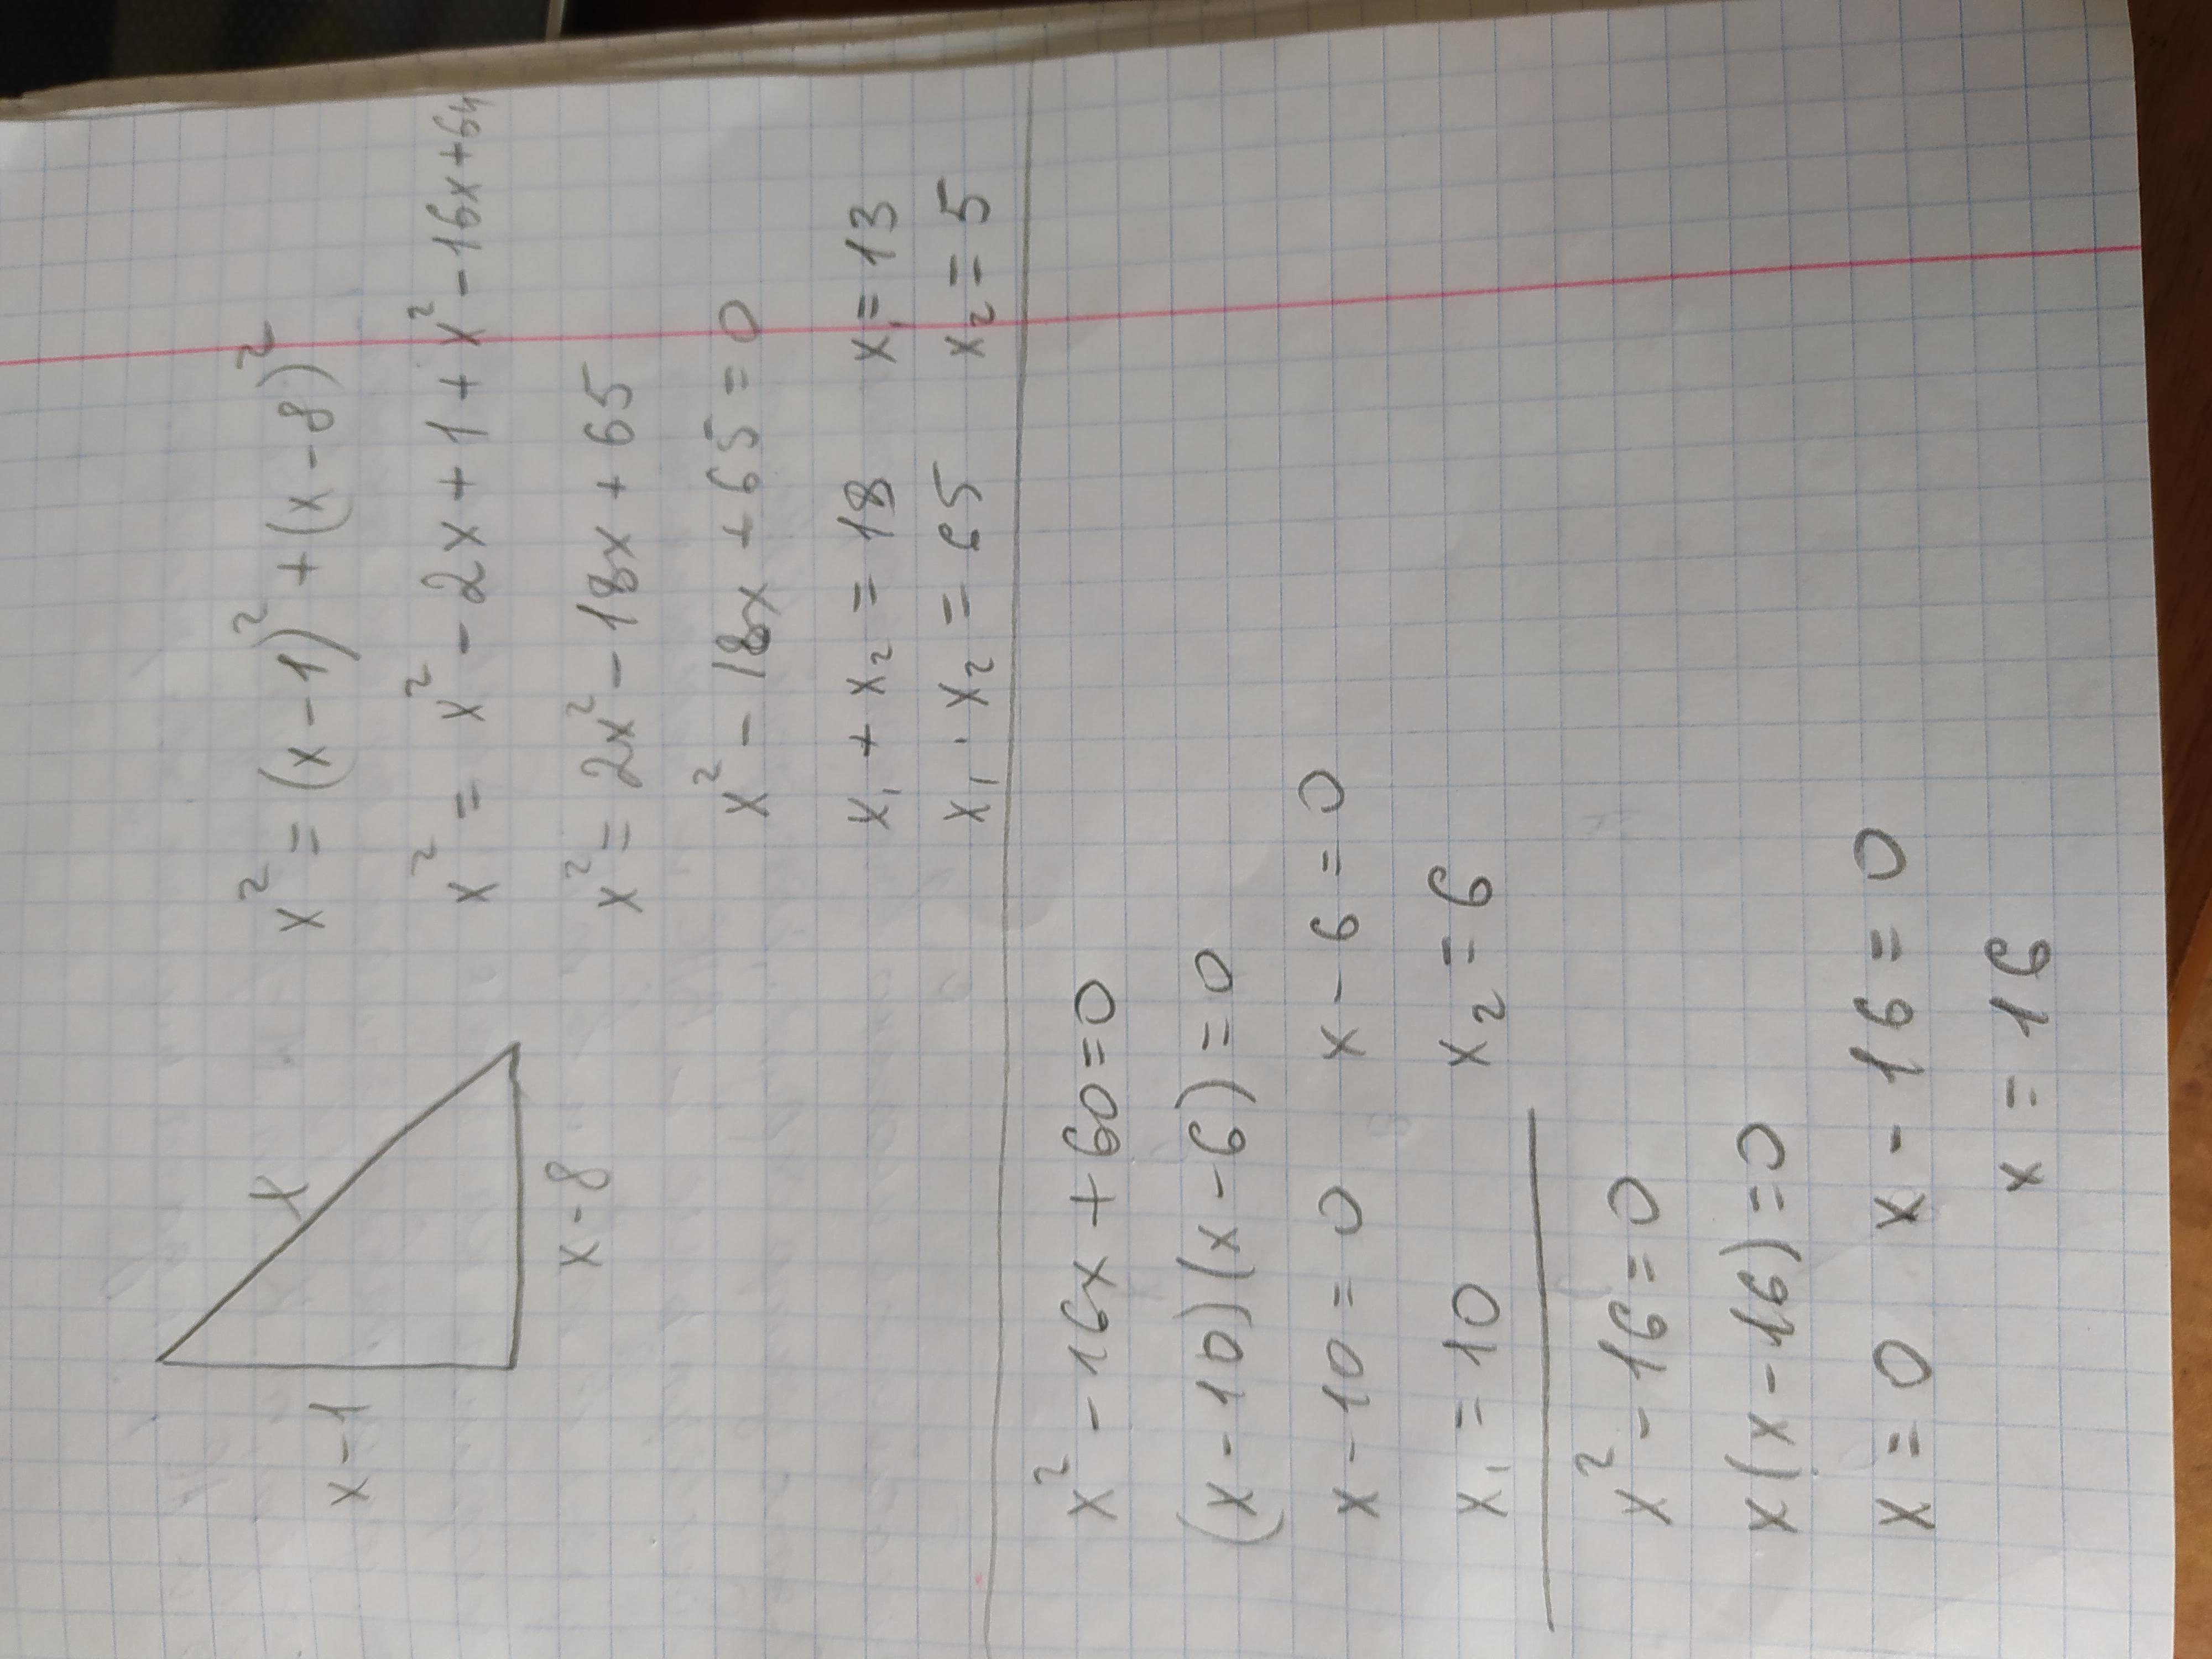 x
x-1
x-8
x² = (x-1)² + (x-8)²
x² = x² - 2x + 1 + x² - 16x + 64
x² = 2x² - 18x + 65
x² - 18x + 65 = 0
x₁ + x₂ = 18 x₁ = 13
x₁ · x₂ = 65 x₂ = 5
x² - 16x + 60 = 0
(x - 10)(x - 6) = 0
x - 10 = 0 x - 6 = 0
x₁ = 10 x₂ = 6
x² - 16 = 0
x(x - 16) = 0
x = 0 x - 16 = 0
x = 16